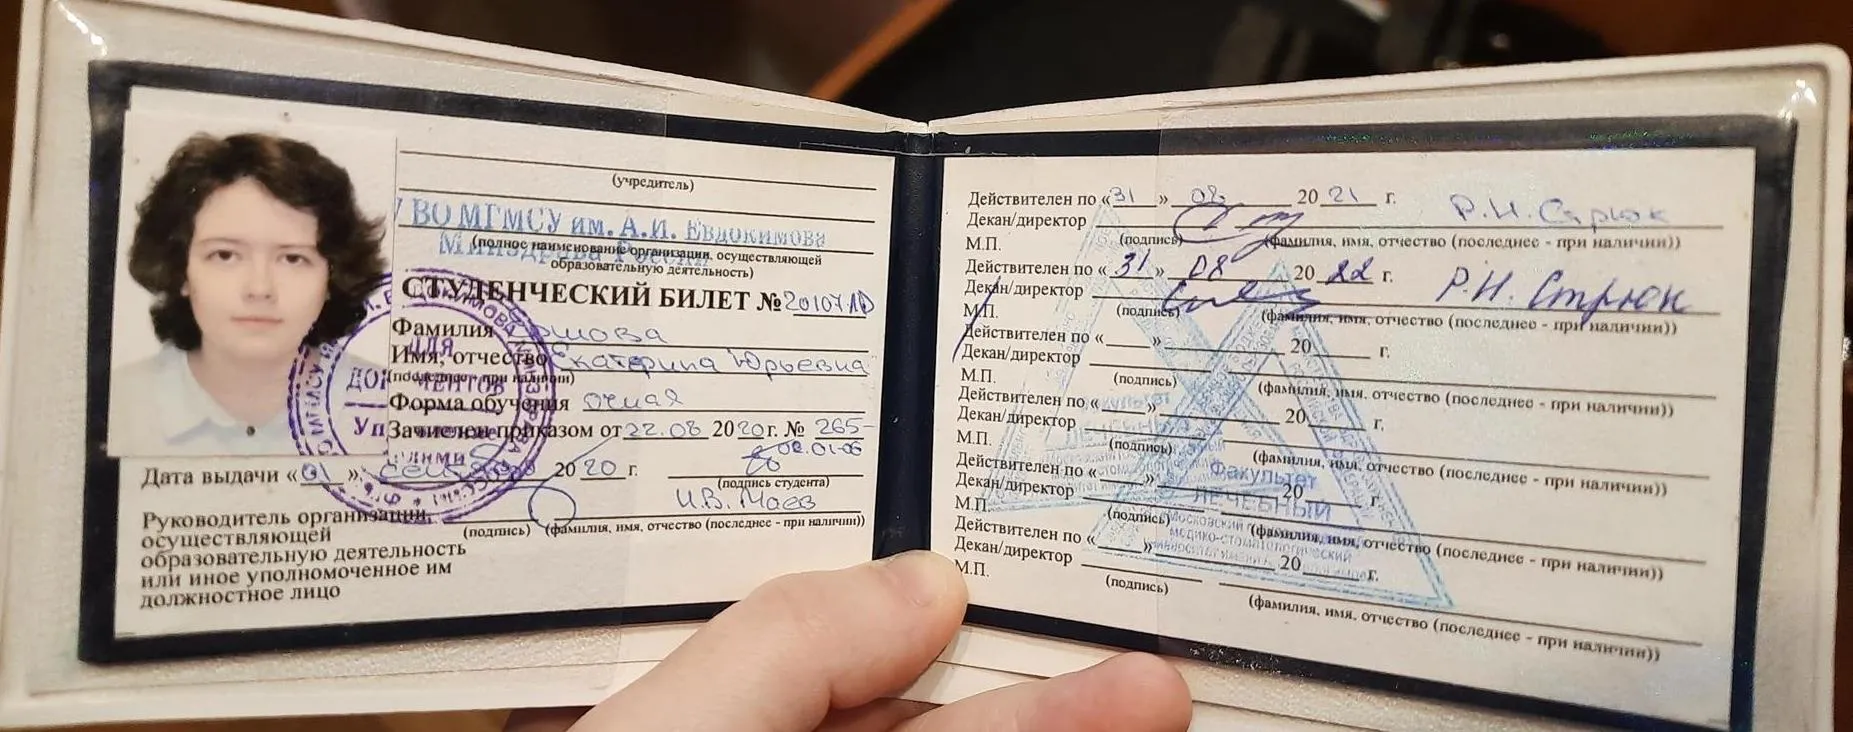 (учредитель)
ВО МГМСУ им. А.И. Евдокимова
Минздрава России
(полное наименование организации, осуществляющей
образовательную деятельность)
СТУДЕНЧЕСКИЙ БИЛЕТ №
Фамилия
Имя, отчество Екатерина Юрьевна
(последнее - при наличии)
Форма обучения очная
Зачислен приказом от 22.08 2020 г. № 265-
02.01-06
Дата выдачи «01» сентября 2020 г.
(подпись студента)
И.В. Маев
Руководитель организации, (подпись) (фамилия, имя, отчество (последнее - при наличии))
осуществляющей
образовательную деятельность
или иное уполномоченное им
должностное лицо
ДЛЯ
ДОКУМЕНТОВ
Действителен по «31» 08 2021 г.
Декан/директор Р.Н. Стрюк
М.П. (подпись) (фамилия, имя, отчество (последнее - при наличии))
Действителен по «31» 08 2022 г.
Декан/директор Р.Н. Стрюк
М.П. (подпись) (фамилия, имя, отчество (последнее - при наличии))
Действителен по «___» 20___ г.
Декан/директор
М.П. (подпись) (фамилия, имя, отчество (последнее - при наличии))
Действителен по «___» 20___ г.
Декан/директор
М.П. (подпись) (фамилия, имя, отчество (последнее - при наличии))
Действителен по «___» 20___ г.
Декан/директор
М.П. (подпись) (фамилия, имя, отчество (последнее - при наличии))
Действителен по «___» 20___ г.
Декан/директор
М.П. (подпись) (фамилия, имя, отчество (последнее - при наличии))
Факультет
ЛЕЧЕБНЫЙ
Московский
медико-стоматологический